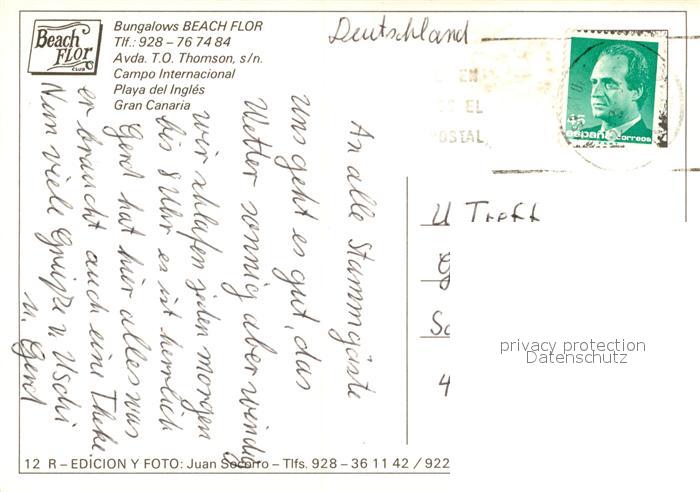 Beach
Flor
CLUB
Bungalows BEACH FLOR
Tlf.: 928 – 76 74 84
Avda. T.O. Thomson, s/n.
Campo Internacional
Playa del Inglés
Gran Canaria
Deutschland
EN
ES EL
POSTAL
45
españa correos
An alle Stammgäste
Uns geht es gut, das
Wetter sonnig aber windig
wir schlafen jeden morgen
bis 8 Uhr es ist herrlich
Gerd hat hier alles was
er braucht auch eine Theke.
Nun viele Grüße v. Uschi
u. Gerd
U Treff
G
Sc
4
privacy protection
Datenschutz
12 R – EDICION Y FOTO: Juan Socorro – Tlfs. 928 – 36 11 42 / 922